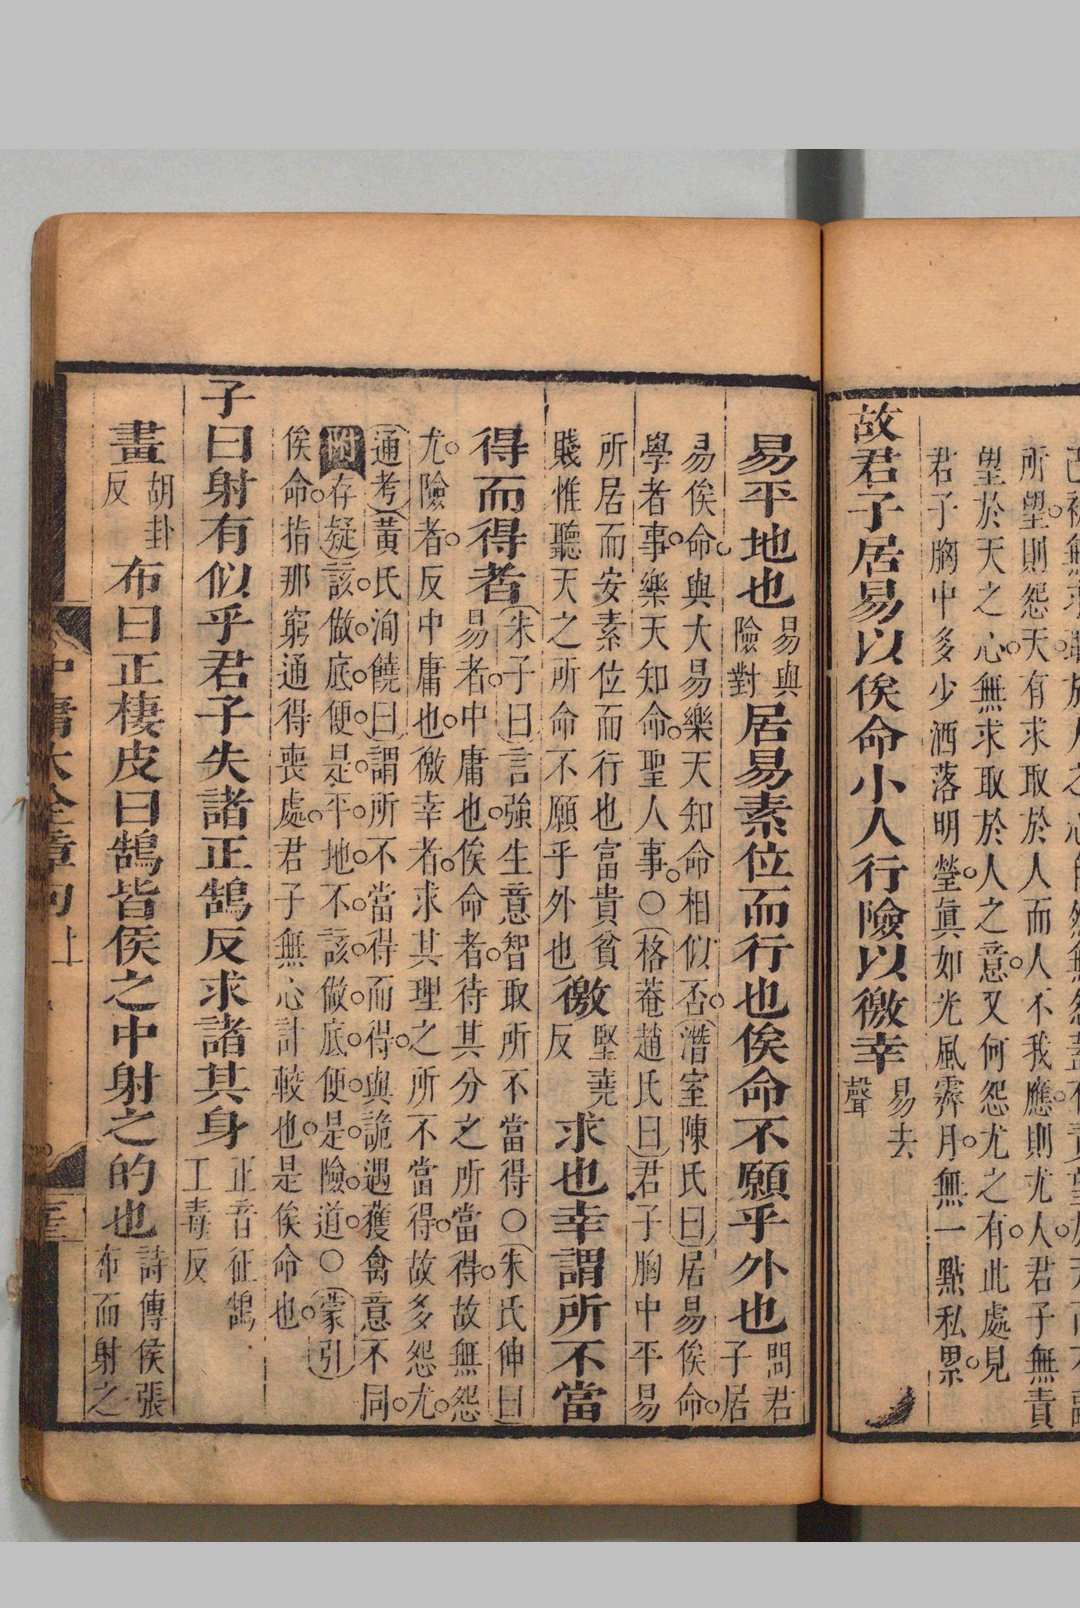 所望則怨天有求取於人而人不我應則尤人君子無責
望於天之心無求取於人之意又何怨尤之有此處見
君子胸中多少洒落明瑩眞如光風霽月無一點私累
故君子居易以俟命小人行險以徼幸易去聲
易平地也易與險對居易素位而行也俟命不願乎外也問君子居
易俟命與大易樂天知命相似否潛室陳氏曰居易俟命
學者事樂天知命聖人事○格菴趙氏曰君子胸中平易
所居而安素位而行也富貴貧
賤惟聽天之所命不願乎外也
徼堅堯反求也幸謂所不當
得而得者
朱子曰言強生意智取所不當得○朱氏伸曰
易者中庸也俟命者待其分之所當得故無怨
尤險者反中庸也徼幸者求其理之所不當得故多怨尤
通考黃氏洵饒曰謂所不當得而得與詭遇獲禽意不同
附存疑該做底便是平地不該做底便是險道○蒙引
俟命指那窮通得喪處君子無心計較也是俟命也
子曰射有似乎君子失諸正鵠反求諸其身正音征鵠工毒反
畫胡卦反布曰正棲皮曰鵠皆侯之中射之的也詩傳侯張布而射之
中庸大全章句上